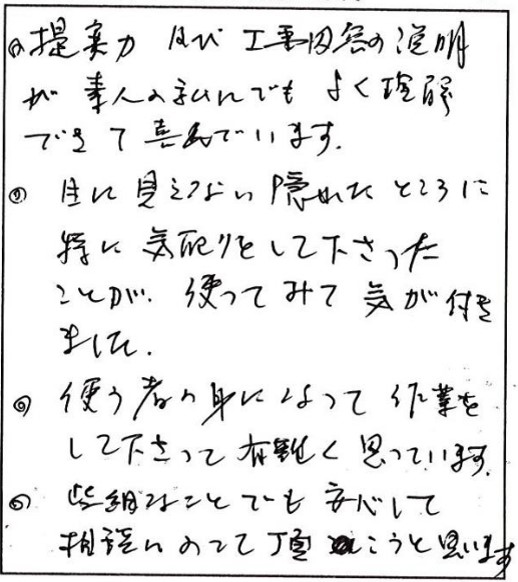 ◎提案力 及び 工事内容の説明
が 素人の私にでも よく理解
できて 喜んでいます.
◎ 目に見えない 隠れた ところに
特に 気配りをして下さった
ことが. 使ってみて 気が付き
ました.
◎ 使う者の身になって 作業を
して下さって 有難く 思っています.
◎ 些細なことでも 安心して
相談にのって頂こうと思います